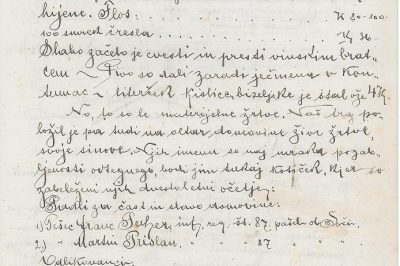 hijene. Flos: . . . . . . . . . . K 80-100-
100 smrek čresla . . . . . . . . . . K 36-
Slako začeto je cvesti in presti vinskim brat-
cem ~ Pivo so dali zaradi ječmena v Kon-
tumac ~ literček kislice bizeljske je stal že 4K.
No, to so le materijelne žrtve. Naš trg po-
ložil je pa tudi na oltar domovine žive žrtve,
svoje sinove. Njih imena se naj mraka pozab-
ljenosti odtegnejo bodi jim tukaj kotiček, kjer so
zabeleženi njih dvestoletni očetje:
Padli za čast in slavo domovine:
1) Franc inf. reg. št. 87, pri
2.) " Martin Pislan, " " 87 " " "
Odlikovanja: